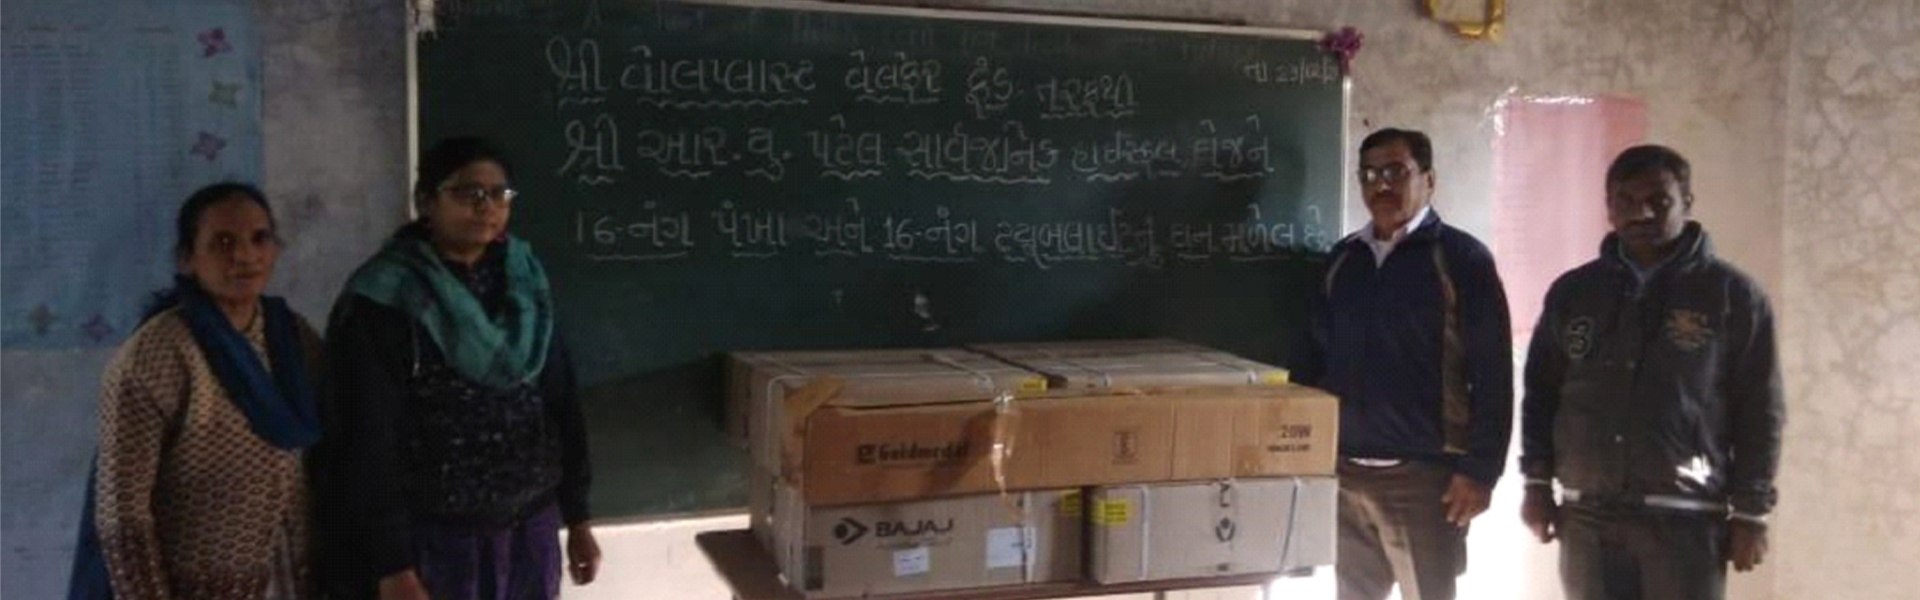 તા 23/02/
શ્રી વોલપ્લાસ્ટ વેલફેર ફંડ તરફથી
શ્રી આર. વુ. પટેલ સાર્વજનિક હાઈસ્કૂલ
16-નંગ પંખા અને 16-નંગ ટ્યુબલાઈટનું દાન મળેલ છે.
Goldmedal
20W
BAJAJ
3